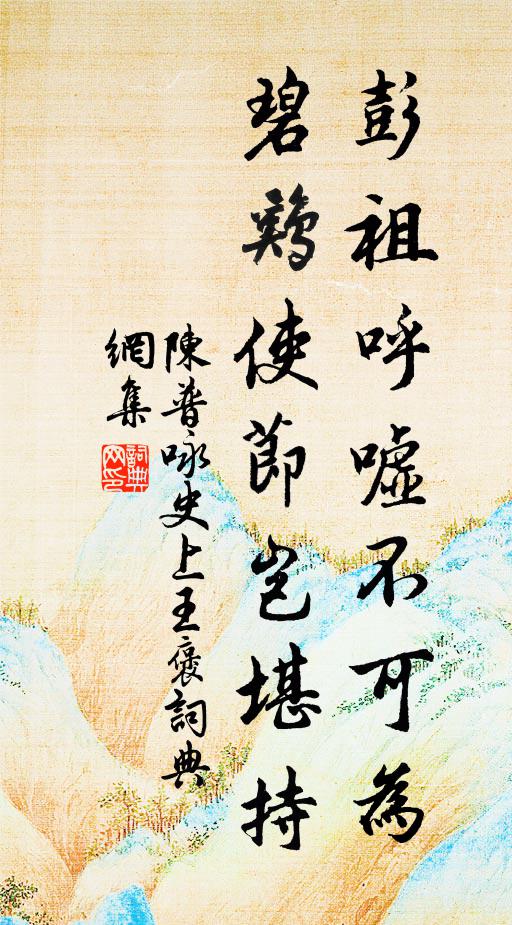 彭祖呼嘘不可為
碧鶏使節岂堪持
陳普咏史上王褒詞典
網集
詞典
网印